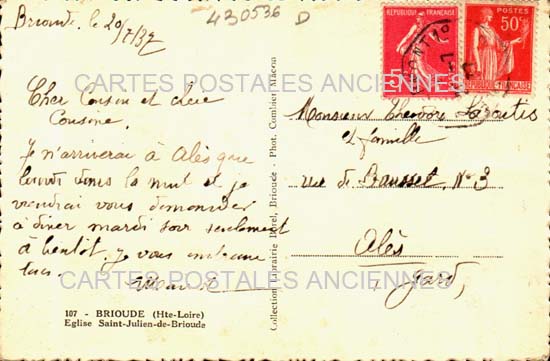 Brioude le 20/7/37
430536 D
REPUBLIQUE FRANÇAISE
POSTES
50c
REPUBLIQUE FRANÇAISE
CARTES POSTALES ANCIENNES
Cher Cousin et chère
Cousine.
Je n'arriverai à Alès que
lundi dans la nuit et je
viendrai vous demander
à diner mardi soir seulement
à bientôt. je vous embrasse
tous.
Monsieur Théodore
et famille
rue de Bausset, N° 3
Alès
Gard
CARTES POSTALES ANCIENNES
107 - BRIOUDE (Hte-Loire)
Eglise Saint-Julien-de-Brioude
Collection Librairie Borel, Brioude - Phot. Combier Mâcon